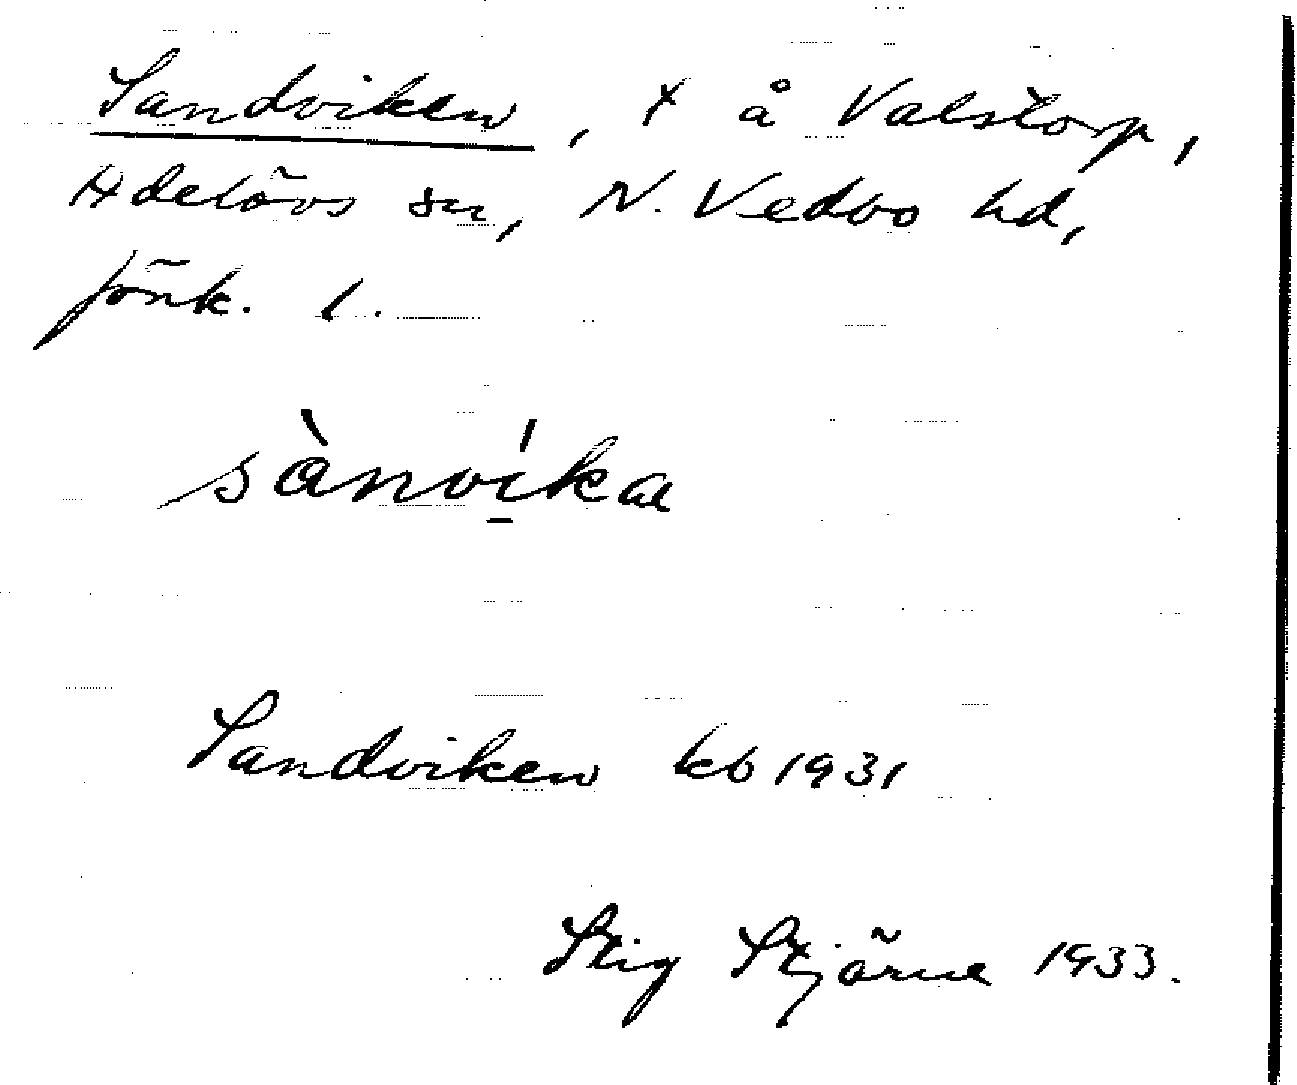 Sandviken, × å Valstorp,
Adelövs sn, N. Vedbo hd,
Jönk. l.
sànví̠ka
Sandviken kb 1931
Stig Stjärne 1933.